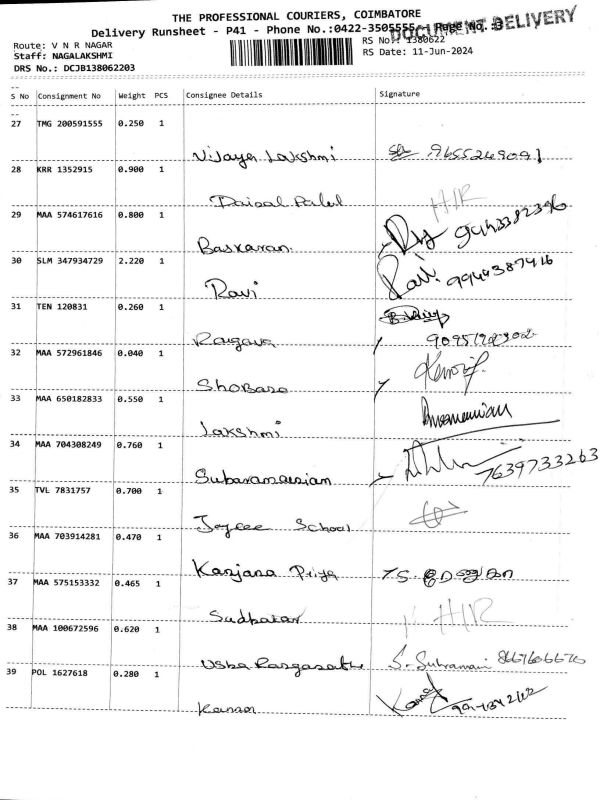 THE PROFESSIONAL COURIERS, COIMBATORE
DOCUMENT DELIVERY
Delivery Runsheet - P41 - Phone No.:0422-3505555 Page No.:3
Route: V N R NAGAR
RS No: 1380622
Staff: NAGALAKSHMI
RS Date: 11-Jun-2024
DRS No.: DCJB138062203
S No Consignment No Weight PCS Consignee Details Signature
27 TMG 200591555 0.250 1
Vijaya Lakshmi 9655249091
28 KRR 1352915 0.900 1
Daisal Patel HIR
29 MAA 574617616 0.800 1
Baskaran 9443382396
30 SLM 347934729 2.220 1
Ravi Ravi 9944387416
31 TEN 120831 0.260 1
Ragava
32 MAA 572961846 0.040 1
Shobana
33 MAA 650182833 0.550 1
Lakshmi
34 MAA 704308249 0.760 1
Subaramaniam 7639733263
35 TVL 7831757 0.700 1
Jaycee School
36 MAA 703914281 0.470 1
Kanjana Priya
37 MAA 575153332 0.465 1
Sudhakar HIR
38 MAA 100672596 0.620 1
Usha Rangasathi S. Subramani 8667606676
39 POL 1627618 0.280 1
Kanan